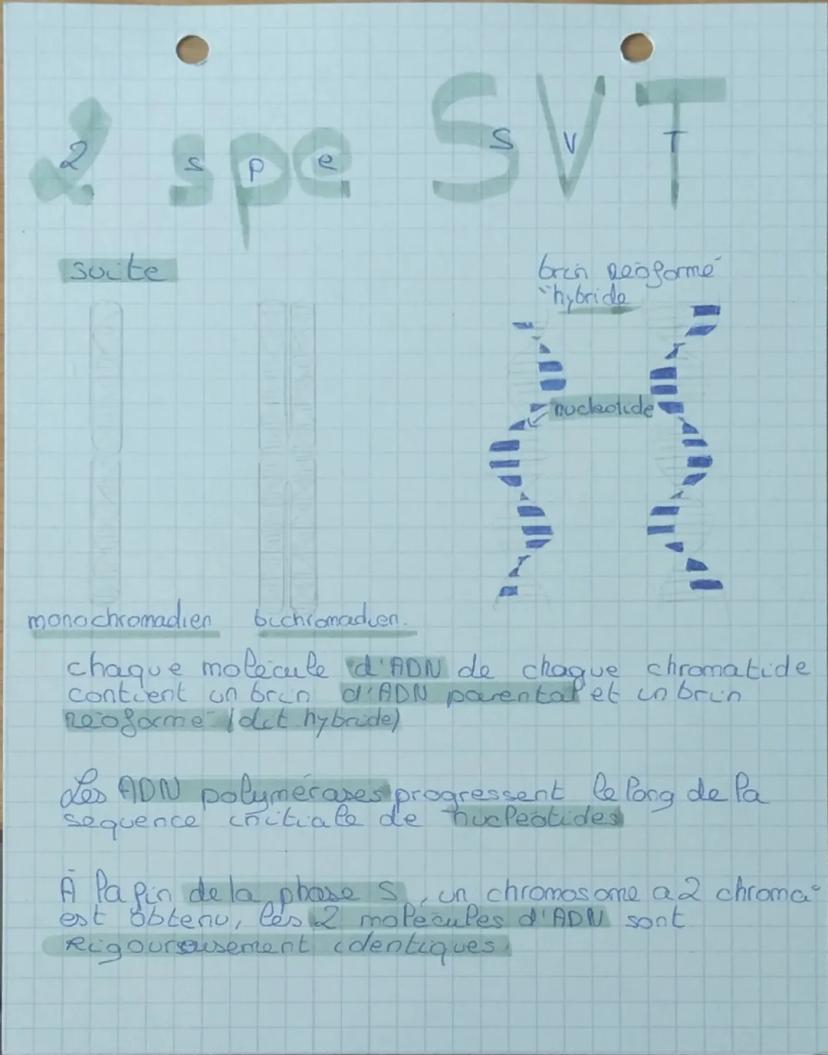 2 spe SVT
suite
brin néoformé
"hybride
nucleotide
monochromadien bichromadien.
chaque molécule d'ADN de chaque chromatide
contient un brin d'ADN parental et un brin
néoformé (dit hybride)
Les ADN polymérases progressent le long de la
séquence initiale de nucléotides
À la fin de la phase S, un chromosome a 2 chroma°
est obtenu, les 2 molécules d'ADN sont
rigoureusement identiques.